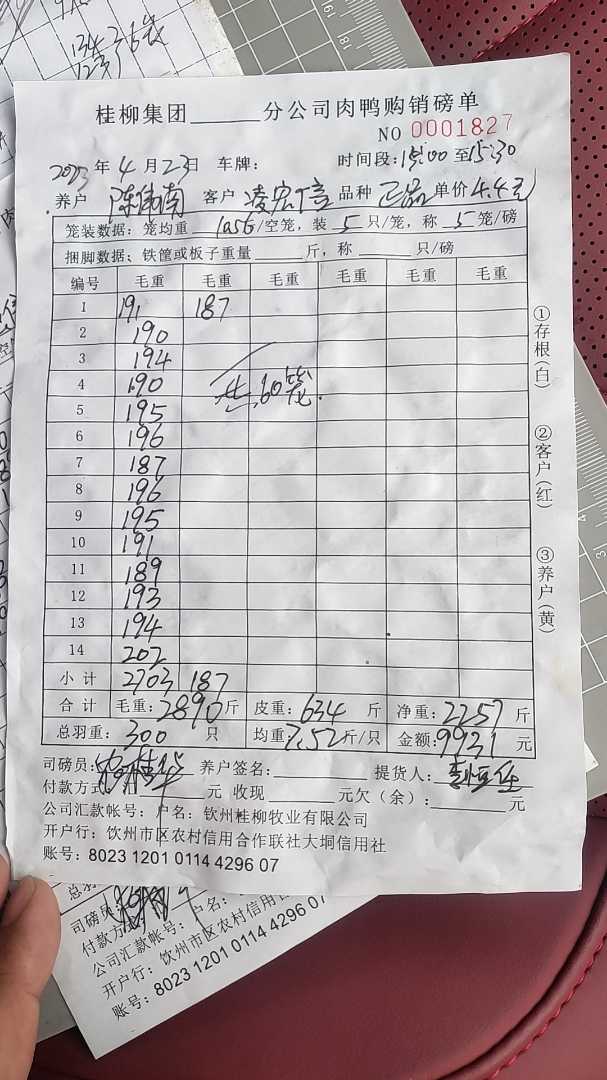 134 36袋
桂柳集团______分公司肉鸭购销磅单
NO 0001827
2023年4月23日 车牌： 时间段：15:00至15:30
养户 陈伟南 客户 凌宏信 品种 正品 单价 4.4元
笼装数据：笼均重 /空笼，装 5 只/笼，称 5 笼/磅
捆脚数据：铁筐或板子重量______斤，称______只/磅
编号 毛重 毛重 毛重 毛重 毛重 毛重
1 191 187
2 190
3 194
4 190 共60笼.
5 195
6 196
7 187
8 196
9 195
10 191
11 189
12 193
13 194
14 202
小计 2703 187
合计 毛重：2890斤 皮重：634斤 净重：2257斤
总羽重：300只 均重：7.52斤/只 金额：9931元
司磅员： 养户签名：______ 提货人：
付款方式： 元 收现______元欠（余）：______元
公司汇款帐号：户名：钦州桂柳牧业有限公司
开户行：饮州市区农村信用合作联社大垌信用社
账号：8023 1201 0114 4296 07
①存根(白)
②客户(红)
③养户(黄)
总羽
司磅员
付款方式
公司汇款帐号：户名：
开户行：饮州市区农村信用
账号：8023 1201 0114 4296 07